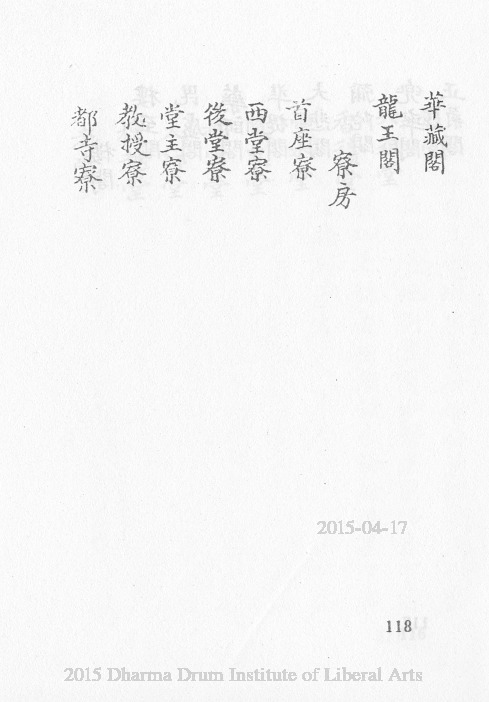 華藏閣
龍王閣
寮房
首座寮
西堂寮
後堂寮
堂主寮
教授寮
都寺寮
2015-04-17
118
2015 Dharma Drum Institute of Liberal Arts